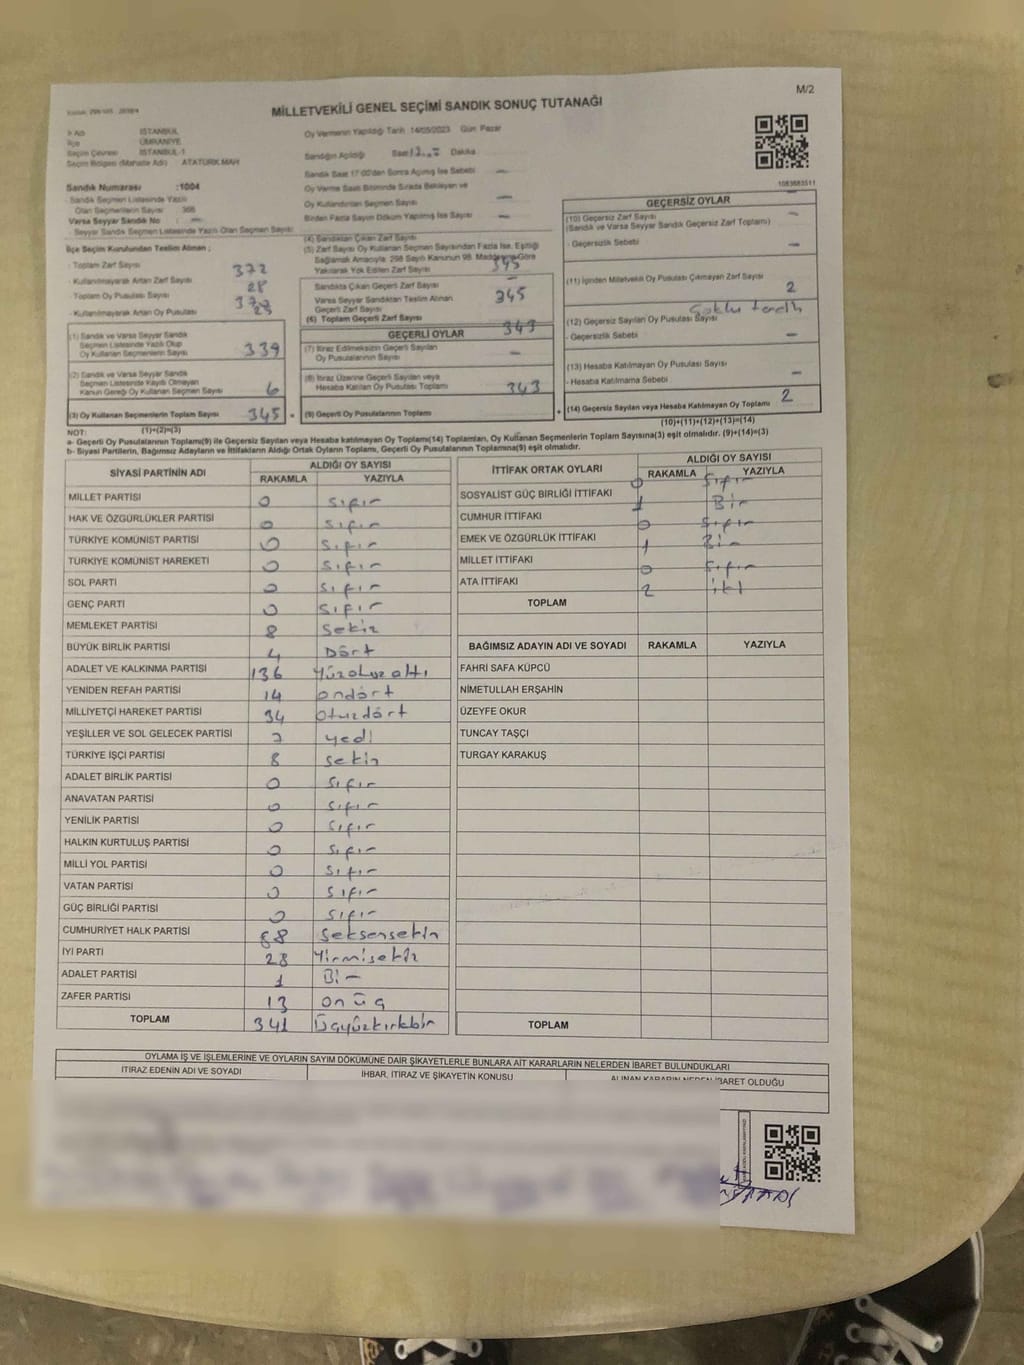 M/2
MİLLETVEKİLİ GENEL SEÇİMİ SANDIK SONUÇ TUTANAĞI
İl Adı İSTANBUL
İlçe ÜMRANİYE
Seçim Çevresi İSTANBUL-1
Seçim Bölgesi (Mahalle Adı) ATATÜRK MAH
Sandık Numarası :1004
- Sandık Seçmen Listesinde Yazılı
Olan Seçmenlerin Sayısı 366
Varsa Seyyar Sandık No : —
- Seyyar Sandık Seçmen Listesinde Yazılı Olan Seçmen Sayısı
İlçe Seçim Kurulundan Teslim Alınan ;
- Toplam Zarf Sayısı 372
- Kullanılmayarak Artan Zarf Sayısı 28
Toplam Oy Pusulası Sayısı
- Kullanılmayarak Artan Oy Pusulası
(1) Sandık ve Varsa Seyyar Sandık
Seçmen Listesinde Yazılı Olup
Oy Kullanan Seçmenlerin Sayısı 339
(2) Sandık ve Varsa Seyyar Sandık
Seçmen Listesinde Kayıtlı Olmayan
Kanun Gereği Oy Kullanan Seçmen Sayısı 6
(3) Oy Kullanan Seçmenlerin Toplam Sayısı 345 =
(1)+(2)=(3)
Oy Vermenin Yapıldığı Tarih 14/05/2023 Gün Pazar
Sandığın Açıldığı Saat Dakika
Sandık Saat 17:00'dan Sonra Açılmış İse Sebebi —
Oy Verme Saati Bitiminde Sırada Bekleyen ve
Oy Kullandırılan Seçmen Sayısı —
Birden Fazla Sayım Döküm Yapılmış İse Sayısı —
(4) Sandıktan Çıkan Zarf Sayısı
(5) Zarf Sayısı Oy Kullanan Seçmen Sayısından Fazla İse, Eşitliği
Sağlamak Amacıyla; 298 Sayılı Kanunun 98. Maddesine Göre
Yakılarak Yok Edilen Zarf Sayısı 345
Sandıkta Çıkan Geçerli Zarf Sayısı
Varsa Seyyar Sandıktan Teslim Alınan 345
Geçerli Zarf Sayısı
(6) Toplam Geçerli Zarf Sayısı
343
GEÇERLİ OYLAR
(7) İtiraz Edilmeksizin Geçerli Sayılan
Oy Pusulalarının Sayısı —
(8) İtiraz Üzerine Geçerli Sayılan veya
Hesaba Katılan Oy Pusulası Toplamı 343
(9) Geçerli Oy Pusulalarının Toplamı +
1083683511
GEÇERSİZ OYLAR
(10) Geçersiz Zarf Sayısı —
(Sandık ve Varsa Seyyar Sandık Geçersiz Zarf Toplamı)
- Geçersizlik Sebebi —
(11) İçinden Milletvekili Oy Pusulası Çıkmayan Zarf Sayısı
2
(12) Geçersiz Sayılan Oy Pusulası Sayısı
- Geçersizlik Sebebi —
(13) Hesaba Katılmayan Oy Pusulası Sayısı
- Hesaba Katılmama Sebebi —
(14) Geçersiz Sayılan veya Hesaba Katılmayan Oy Toplamı 2
(10)+(11)+(12)+(13)=(14)
NOT:
a- Geçerli Oy Pusulalarının Toplamı(9) ile Geçersiz Sayılan veya Hesaba katılmayan Oy Toplamı(14) Toplamları, Oy Kullanan Seçmenlerin Toplam Sayısına(3) eşit olmalıdır. (9)+(14)=(3)
b- Siyasi Partilerin, Bağımsız Adayların ve İttifakların Aldığı Ortak Oyların Toplamı, Geçerli Oy Pusulalarının Toplamına(9) eşit olmalıdır.
SİYASİ PARTİNİN ADI ALDIĞI OY SAYISI
RAKAMLA YAZIYLA
MİLLET PARTİSİ 0 Sıfır
HAK VE ÖZGÜRLÜKLER PARTİSİ 0 Sıfır
TÜRKİYE KOMÜNİST PARTİSİ 0 Sıfır
TÜRKİYE KOMÜNİST HAREKETİ 0 Sıfır
SOL PARTİ 0 Sıfır
GENÇ PARTİ 0 Sıfır
MEMLEKET PARTİSİ 8 Sekiz
BÜYÜK BİRLİK PARTİSİ 4 Dört
ADALET VE KALKINMA PARTİSİ 136 Yüzotuzaltı
YENİDEN REFAH PARTİSİ 14 ondört
MİLLİYETÇİ HAREKET PARTİSİ 34 otuzdört
YEŞİLLER VE SOL GELECEK PARTİSİ 7 yedi
TÜRKİYE İŞÇİ PARTİSİ 8 sekiz
ADALET BİRLİK PARTİSİ 0 Sıfır
ANAVATAN PARTİSİ 0 Sıfır
YENİLİK PARTİSİ 0 Sıfır
HALKIN KURTULUŞ PARTİSİ 0 Sıfır
MİLLİ YOL PARTİSİ 0 Sıfır
VATAN PARTİSİ 0 Sıfır
GÜÇ BİRLİĞİ PARTİSİ 0 Sıfır
CUMHURİYET HALK PARTİSİ 88 Seksensekiz
İYİ PARTİ 28 Yirmisekiz
ADALET PARTİSİ 1 Bir
ZAFER PARTİSİ 13 on üç
TOPLAM 341 Üçyüzkırkbir
İTTİFAK ORTAK OYLARI ALDIĞI OY SAYISI
RAKAMLA YAZIYLA
SOSYALİST GÜÇ BİRLİĞİ İTTİFAKI 0 Sıfır
CUMHUR İTTİFAKI 1 Bir
EMEK VE ÖZGÜRLÜK İTTİFAKI 0 Sıfır
MİLLET İTTİFAKI 1 Bir
ATA İTTİFAKI 0 Sıfır
TOPLAM 2 iki
BAĞIMSIZ ADAYIN ADI VE SOYADI RAKAMLA YAZIYLA
FAHRİ SAFA KÜPCÜ
NİMETULLAH ERŞAHİN
ÜZEYFE OKUR
TUNCAY TAŞÇI
TURGAY KARAKUŞ
TOPLAM
OYLAMA İŞ VE İŞLEMLERİNE VE OYLARIN SAYIM DÖKÜMÜNE DAİR ŞİKAYETLERLE BUNLARA AİT KARARLARIN NELERDEN İBARET BULUNDUKLARI
İTİRAZ EDENİN ADI VE SOYADI İHBAR, İTİRAZ VE ŞİKAYETİN KONUSU ALINAN KARARIN NEDEN İBARET OLDUĞU